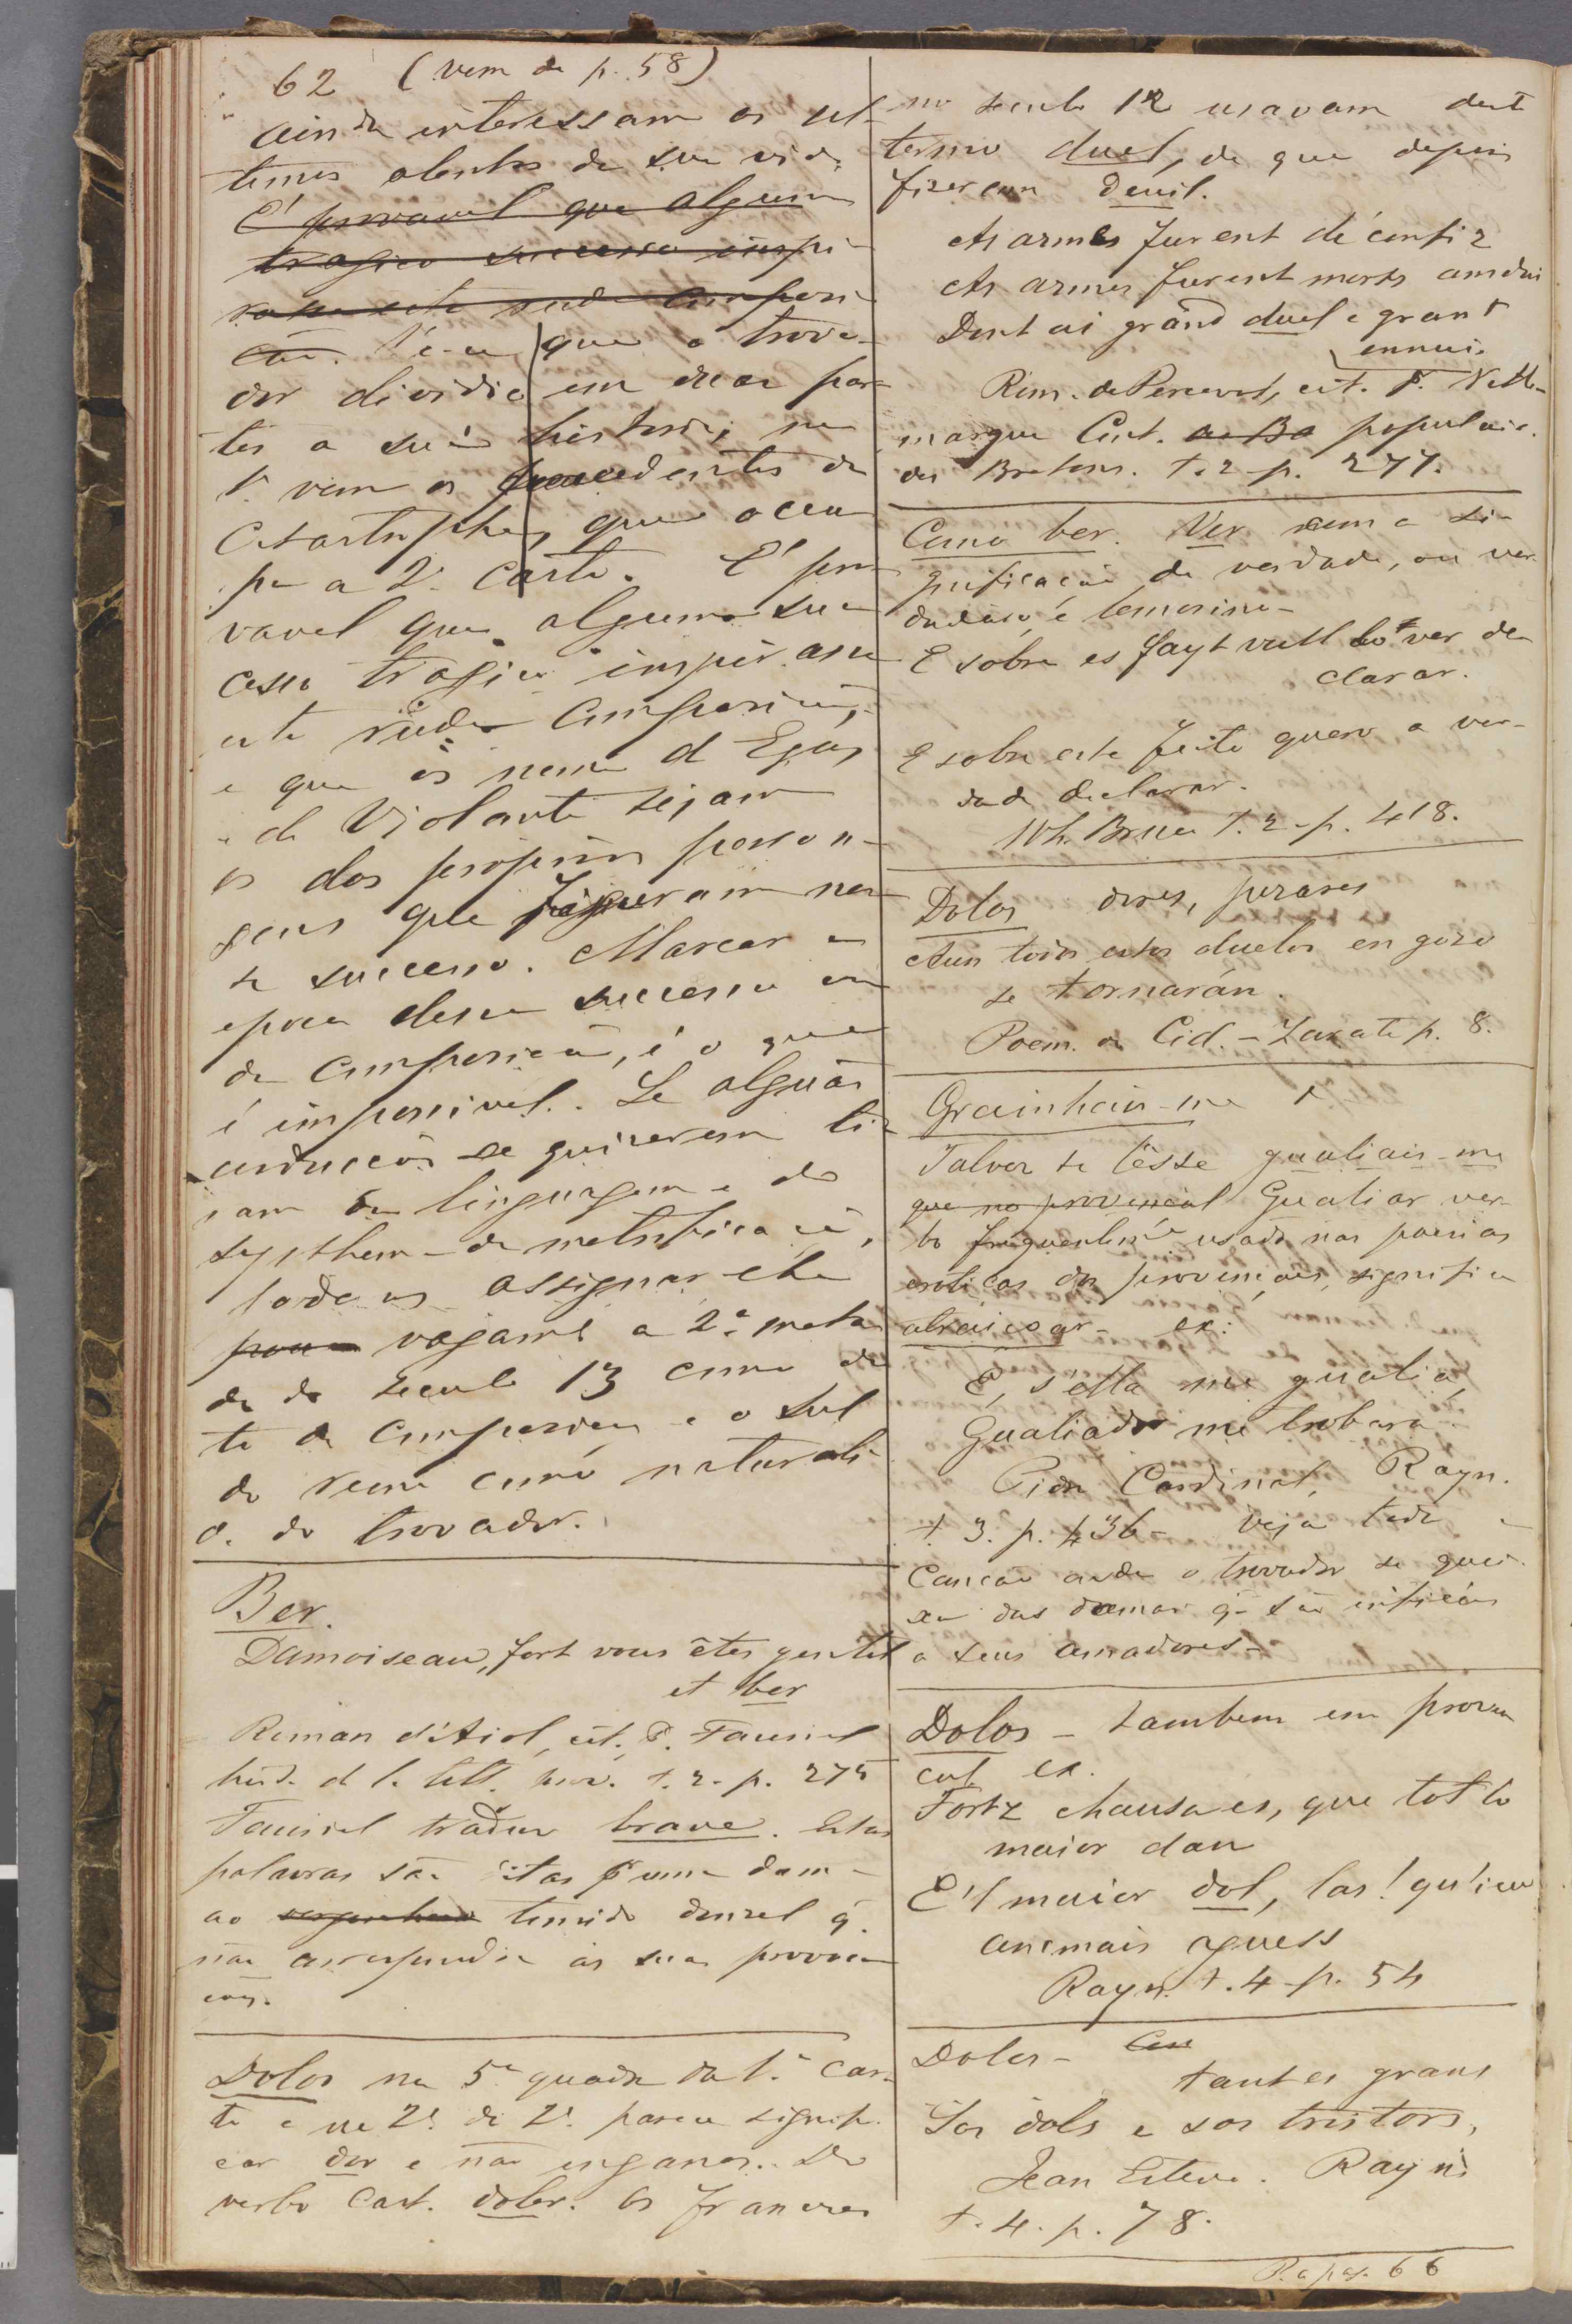 62 (vem de p. 58)
ainda interessam os ul-
timos alentos da sua vida
É provavel que algum
tragico successo inspi-
rasse esta rude composi-
ção. Vê-se que o trova-
dor dividio em duas par-
tes a sua historia; na
1ª vem os precedentes da
catastrophe, que occu-
pa a 2ª carta. É pro-
vavel que algum suc-
cesso tragico inspirasse
esta rude composição,
e que os nomes d Egas
e de Violante sejam
os dos proprios person-
gens que figuraram nes-
te successo. Marcar a
epoca desse successo ou
da composição, é o que
é impossivel. Se algũas
inducções se quizerem ti-
rar da linguagem e do
systhema de metrificação,
pode-se assignar-lhe
vagame a 2ª meta-
de do seculo 13 como da-
ta da composição e o sul
do reino como naturali-
d. do trovador.
Ber.
Damoiseau, fort vous êtes gentil
et ber
Roman d'Aiol, cit. P. Fauriel
hist. d l. litt. prov. t. 2. p. 275
Fauriel traduz brave. Estas
palavras são ditas p uma dama
ao timido donzel q.
não correspondia ás suas provoca-
ções.
Dolos na 5ª quadra da 1ª car-
ta e na 2ª da 2ª parece signifi-
car dor e não enganos. Do
verbo Cast. doler. Os francezes
no seculo 12 usavam deste
termo duel, de que depois
fizeram deuil.
As armes furent déconfiz
As armes furent morts amdui
Dont ai grand duel e grant
ennui.
Rom. de Perceval, cit. p. Ville-
marque Cont. populaire.
des Bretons. t. 2 p. 277.
Como ber. Ver com a si-
gnificação de verdade, ou ver-
dadeiro, é lemosino-
E sobre es fayt vull lo ver de-
clarar.
E sobre este feito quero a ver-
dade declarar.
Wh. Bruce T. 2 - p. 418.
Dolos dores, pezares
Aun todos estos duelos en gozo
se tornarán.
Poem. de Cid. - Zarate p. 8.
Grainhais-me
Talvez se lêsse gualiais-me
que no provençal Gualiar ver-
bo frequentemte usado nas poesias
eroticas dos provençaes, significa
atraiçoar - ex:
E, s'ella me gualia,
Gualiador me trobara
Piere Cardinal, Rayn.
t. 3. p. 436 - veja toda a
Canção onde o trovador se quei-
xa das damas q. são infieis
a seus amadores -
Dolos - tambem em proven-
cal ex.
Fortz chausa es, que tot lo
maior dan
E'l maier dol, las! qu'ieu
anc mais agues
Rayn. t. 4 - p. 54
Doles -
tant es grans
Sos dols e sos tristors,
Jean Esteve. Rayn.
t. 4. p. 78.
P. a pag. 66